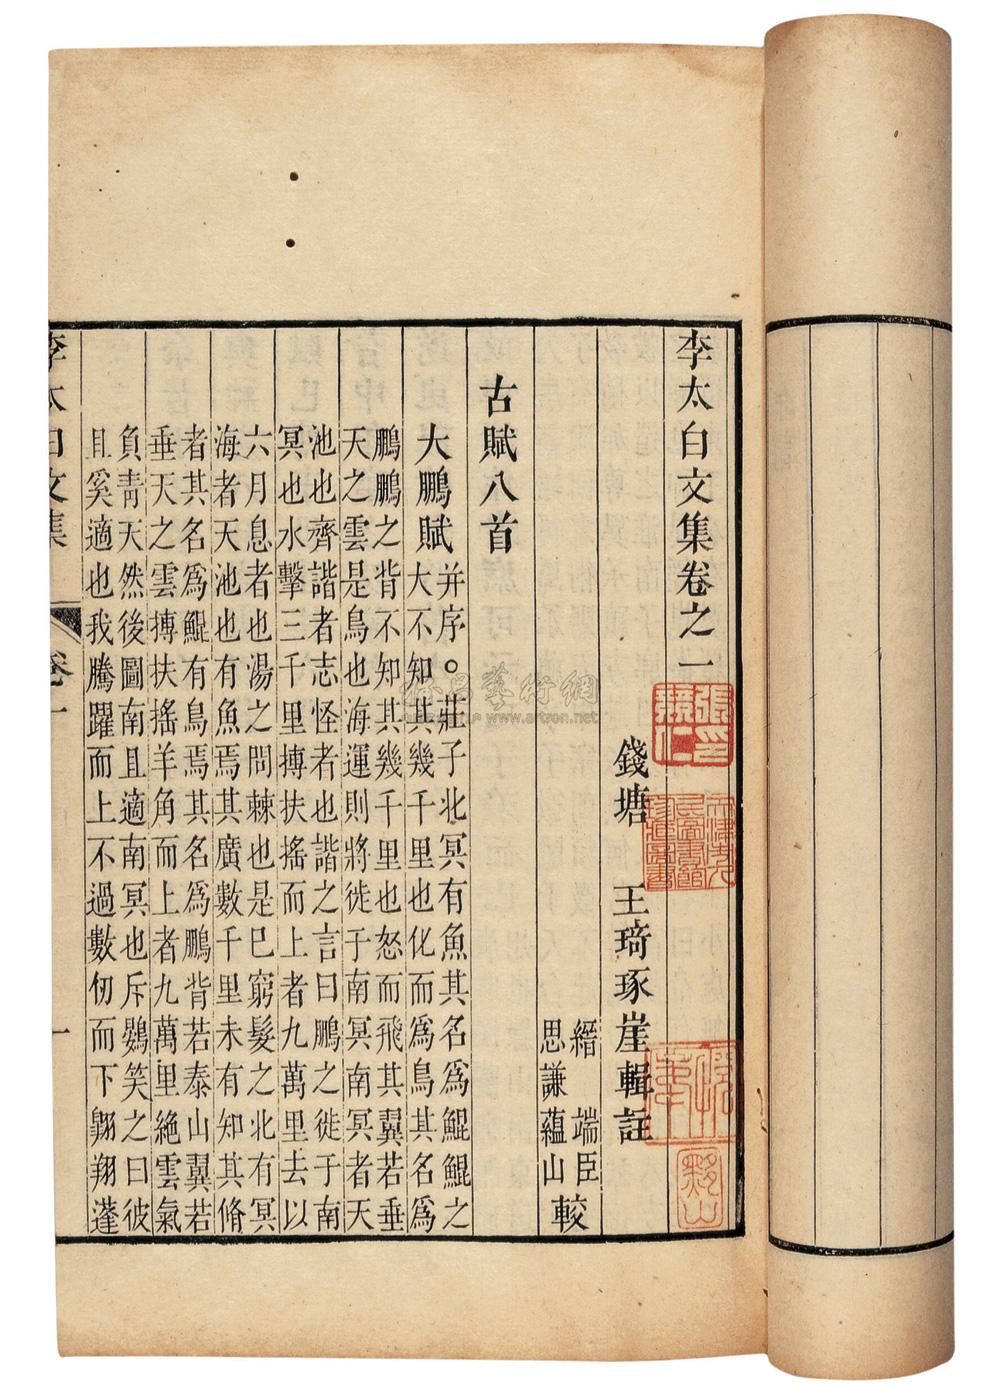 李太白文集卷之一
錢塘 王琦琢崖輯註
縉 端臣
思謙蘊山 較
古賦八首
大鵬賦 并序。莊子北冥有魚其名爲鯤鯤之
大不知其幾千里也化而爲鳥其名爲
鵬鵬之背不知其幾千里也怒而飛其翼若垂
天之雲是鳥也海運則將徙于南冥南冥者天
池也齊諧者志怪者也諧之言曰鵬之徙于南
冥也水擊三千里搏扶搖而上者九萬里去以
六月息者也湯之問棘也是巳窮髮之北有冥
海者天池也有魚焉其廣數千里未有知其脩
者其名爲鯤有鳥焉其名爲鵬背若泰山翼若
垂天之雲搏扶搖羊角而上者九萬里絶雲氣
負青天然後圖南且適南冥也斥鷃笑之曰彼
且奚適也我騰躍而上不過數仞而下翺翔蓬
李太白文集 卷一 一
黟山
www.artron.net